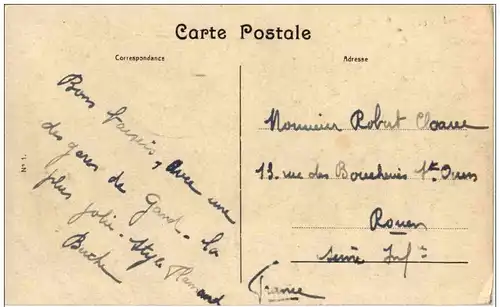 Carte Postale
Correspondance
Adresse
Bons baisers, Avec une
des gares de Gand. La
plus jolie. Style Flamand
Monsieur Robert
13. rue des Boucheries St. Ouen
Rouen
Seine Infre
France
N° 1.